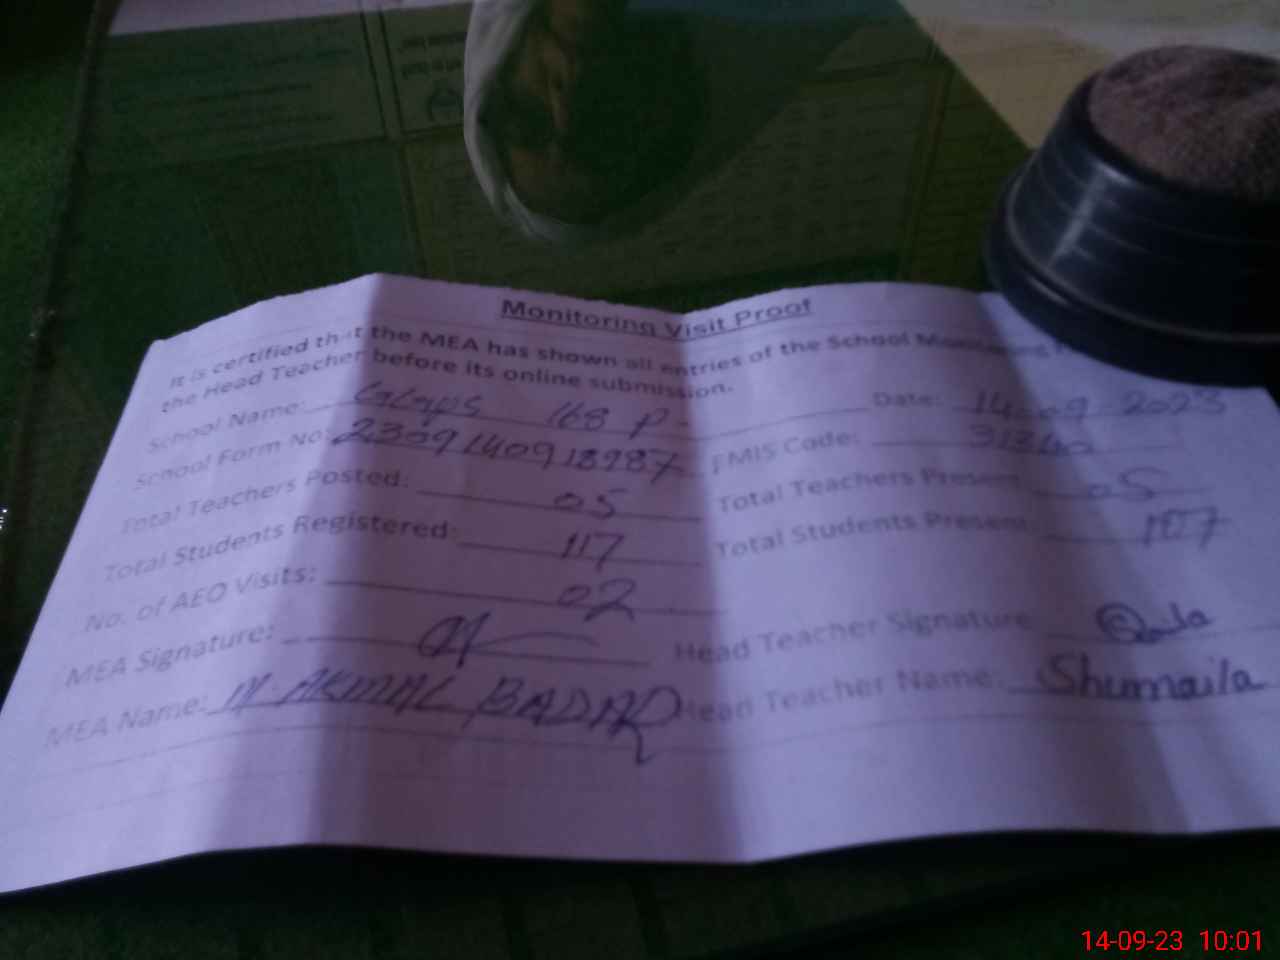 Monitoring Visit Proof
It is certified that the MEA has shown all entries of the School
the Head Teacher before its online submission.
School Name: GGMPS 168 P. Date: 14-09 2023
School Form No: 2309140918987 EMIS Code:
Total Teachers Posted: 05 Total Teachers Present: 05
Total Students Registered: 117 Total Students Present: 107
No. of AEO Visits: 02
MEA Signature: Head Teacher Signature
MEA Name: M. AKMAL BADAR Head Teacher Name: Shumaila
14-09-23 10:01